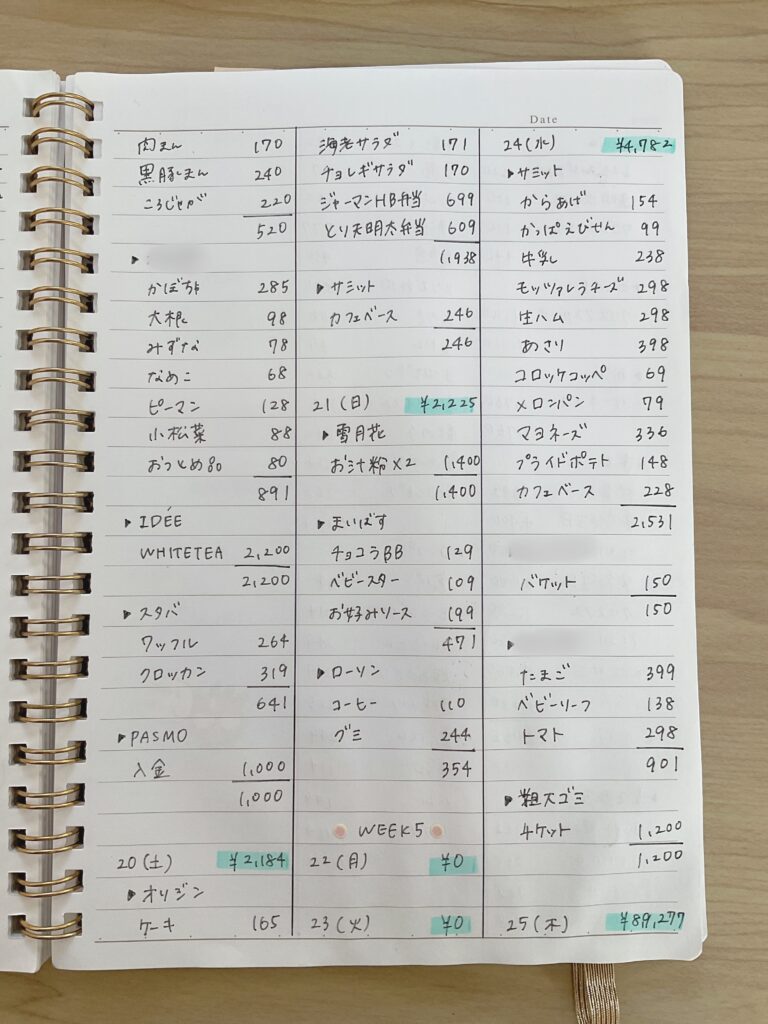 Date
肉まん 170
黒豚まん 240
ころじゃが 220
520
▶
かぼちゃ 285
大根 98
みずな 78
なめこ 68
ピーマン 128
小松菜 88
おつとめ品 80
891
▶IDÉE
WHITETEA 2,200
2,200
▶スタバ
ワッフル 264
クロッカン 319
641
▶PASMO
入金 1,000
1,000
20(土) ¥2,184
▶オリジン
ケーキ 165
海老サラダ 171
チョレギサラダ 170
ジャーマンHB弁当 699
とり天明太弁当 609
1,938
▶サミット
カフェベース 246
246
21(日) ¥2,225
▶雪月花
お汁粉×2 1,400
1,400
▶まいばす
チョコラBB 129
ベビースター 109
お好みソース 199
471
▶ローソン
コーヒー 110
グミ 244
354
WEEK5
22(月) ¥0
23(火) ¥0
24(水) ¥4,782
▶サミット
からあげ 154
かっぱえびせん 99
牛乳 238
モッツァレラチーズ 298
生ハム 298
あさり 398
コロッケコッペ 69
メロンパン 79
マヨネーズ 336
プライドポテト 148
カフェベース 228
2,531
バケット 150
150
▶
たまご 399
ベビーリーフ 138
トマト 298
901
▶粗大ゴミ
チケット 1,200
1,200
25(木) ¥89,277